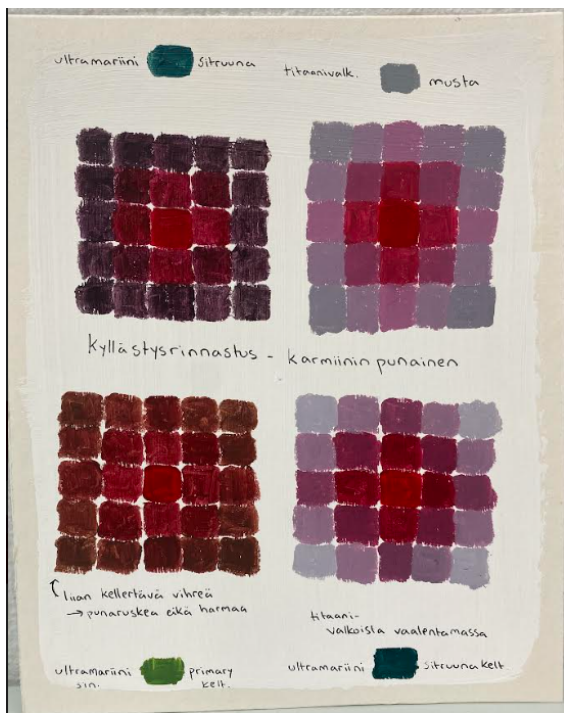 ultramariini sitruuna
titaanivalk. musta
kyllästysrinnastus - karmiininpunainen
liian kellertävä vihreä
→ punaruskea eikä harmaa
titaani-
valkoista vaalentamassa
ultramariini primary
sin. kelt.
ultramariini sitruunakelt